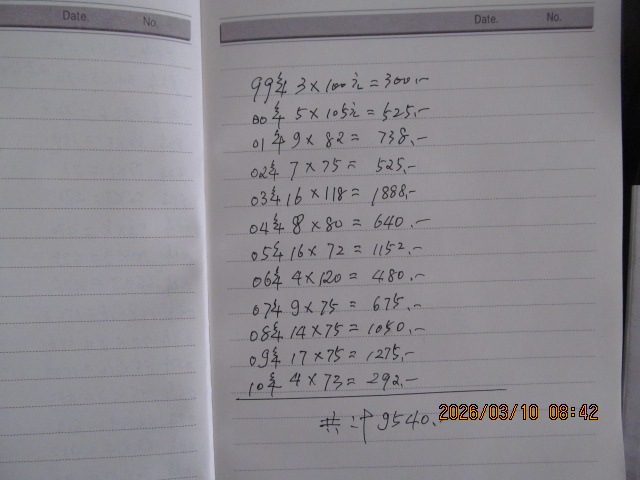 Date. No.
Date. No.
99年 3×100元=300.-
00年 5×105元=525.-
01年 9×82= 738.-
02年 7×75= 525.-
03年 16×118=1888.-
04年 8×80=640.-
05年 16×72=1152.-
06年 4×120=480.-
07年 9×75=675.-
08年 14×75=1050.-
09年 17×75=1275.-
10年 4×73=292.-
共计9540.-
2026/03/10 08:42